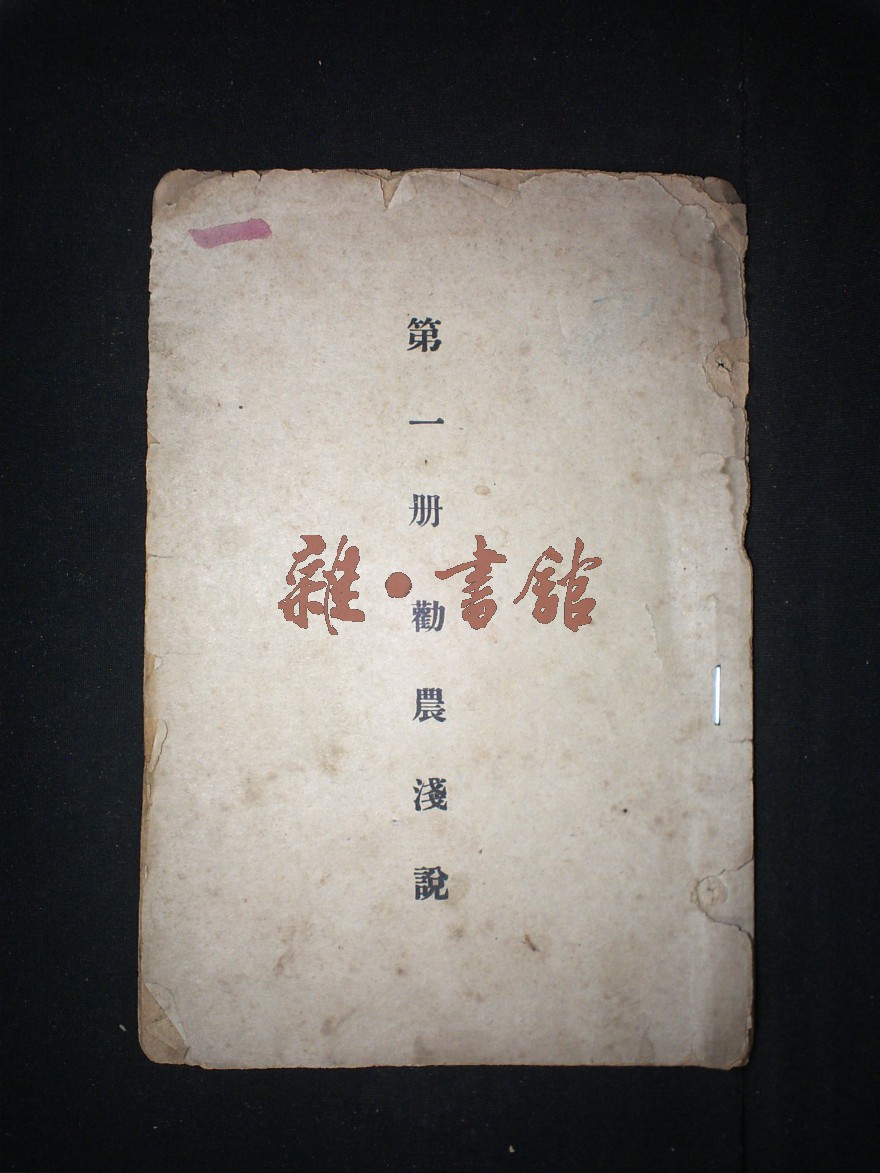 第一册勸農淺說
雜·書館